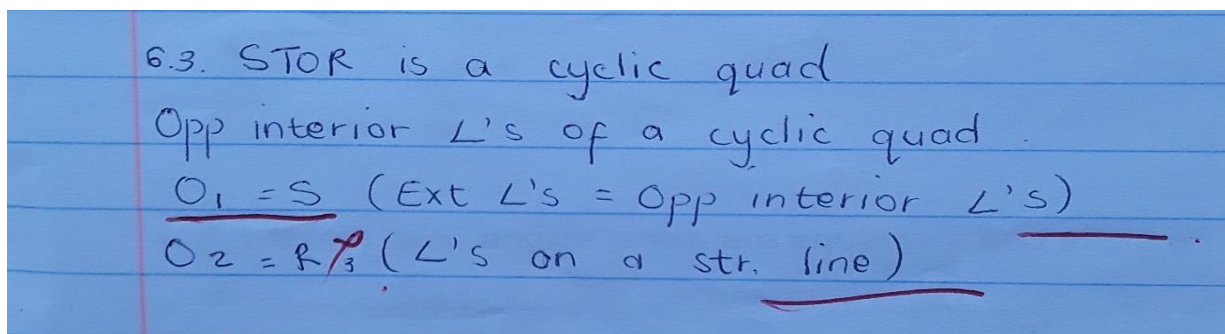 6.3. STOR is a cyclic quad
Opp interior ∠'s of a cyclic quad.
O₁ = S (Ext ∠'s = Opp interior ∠'s)
O₂ = R₃ (∠'s on a str. line)